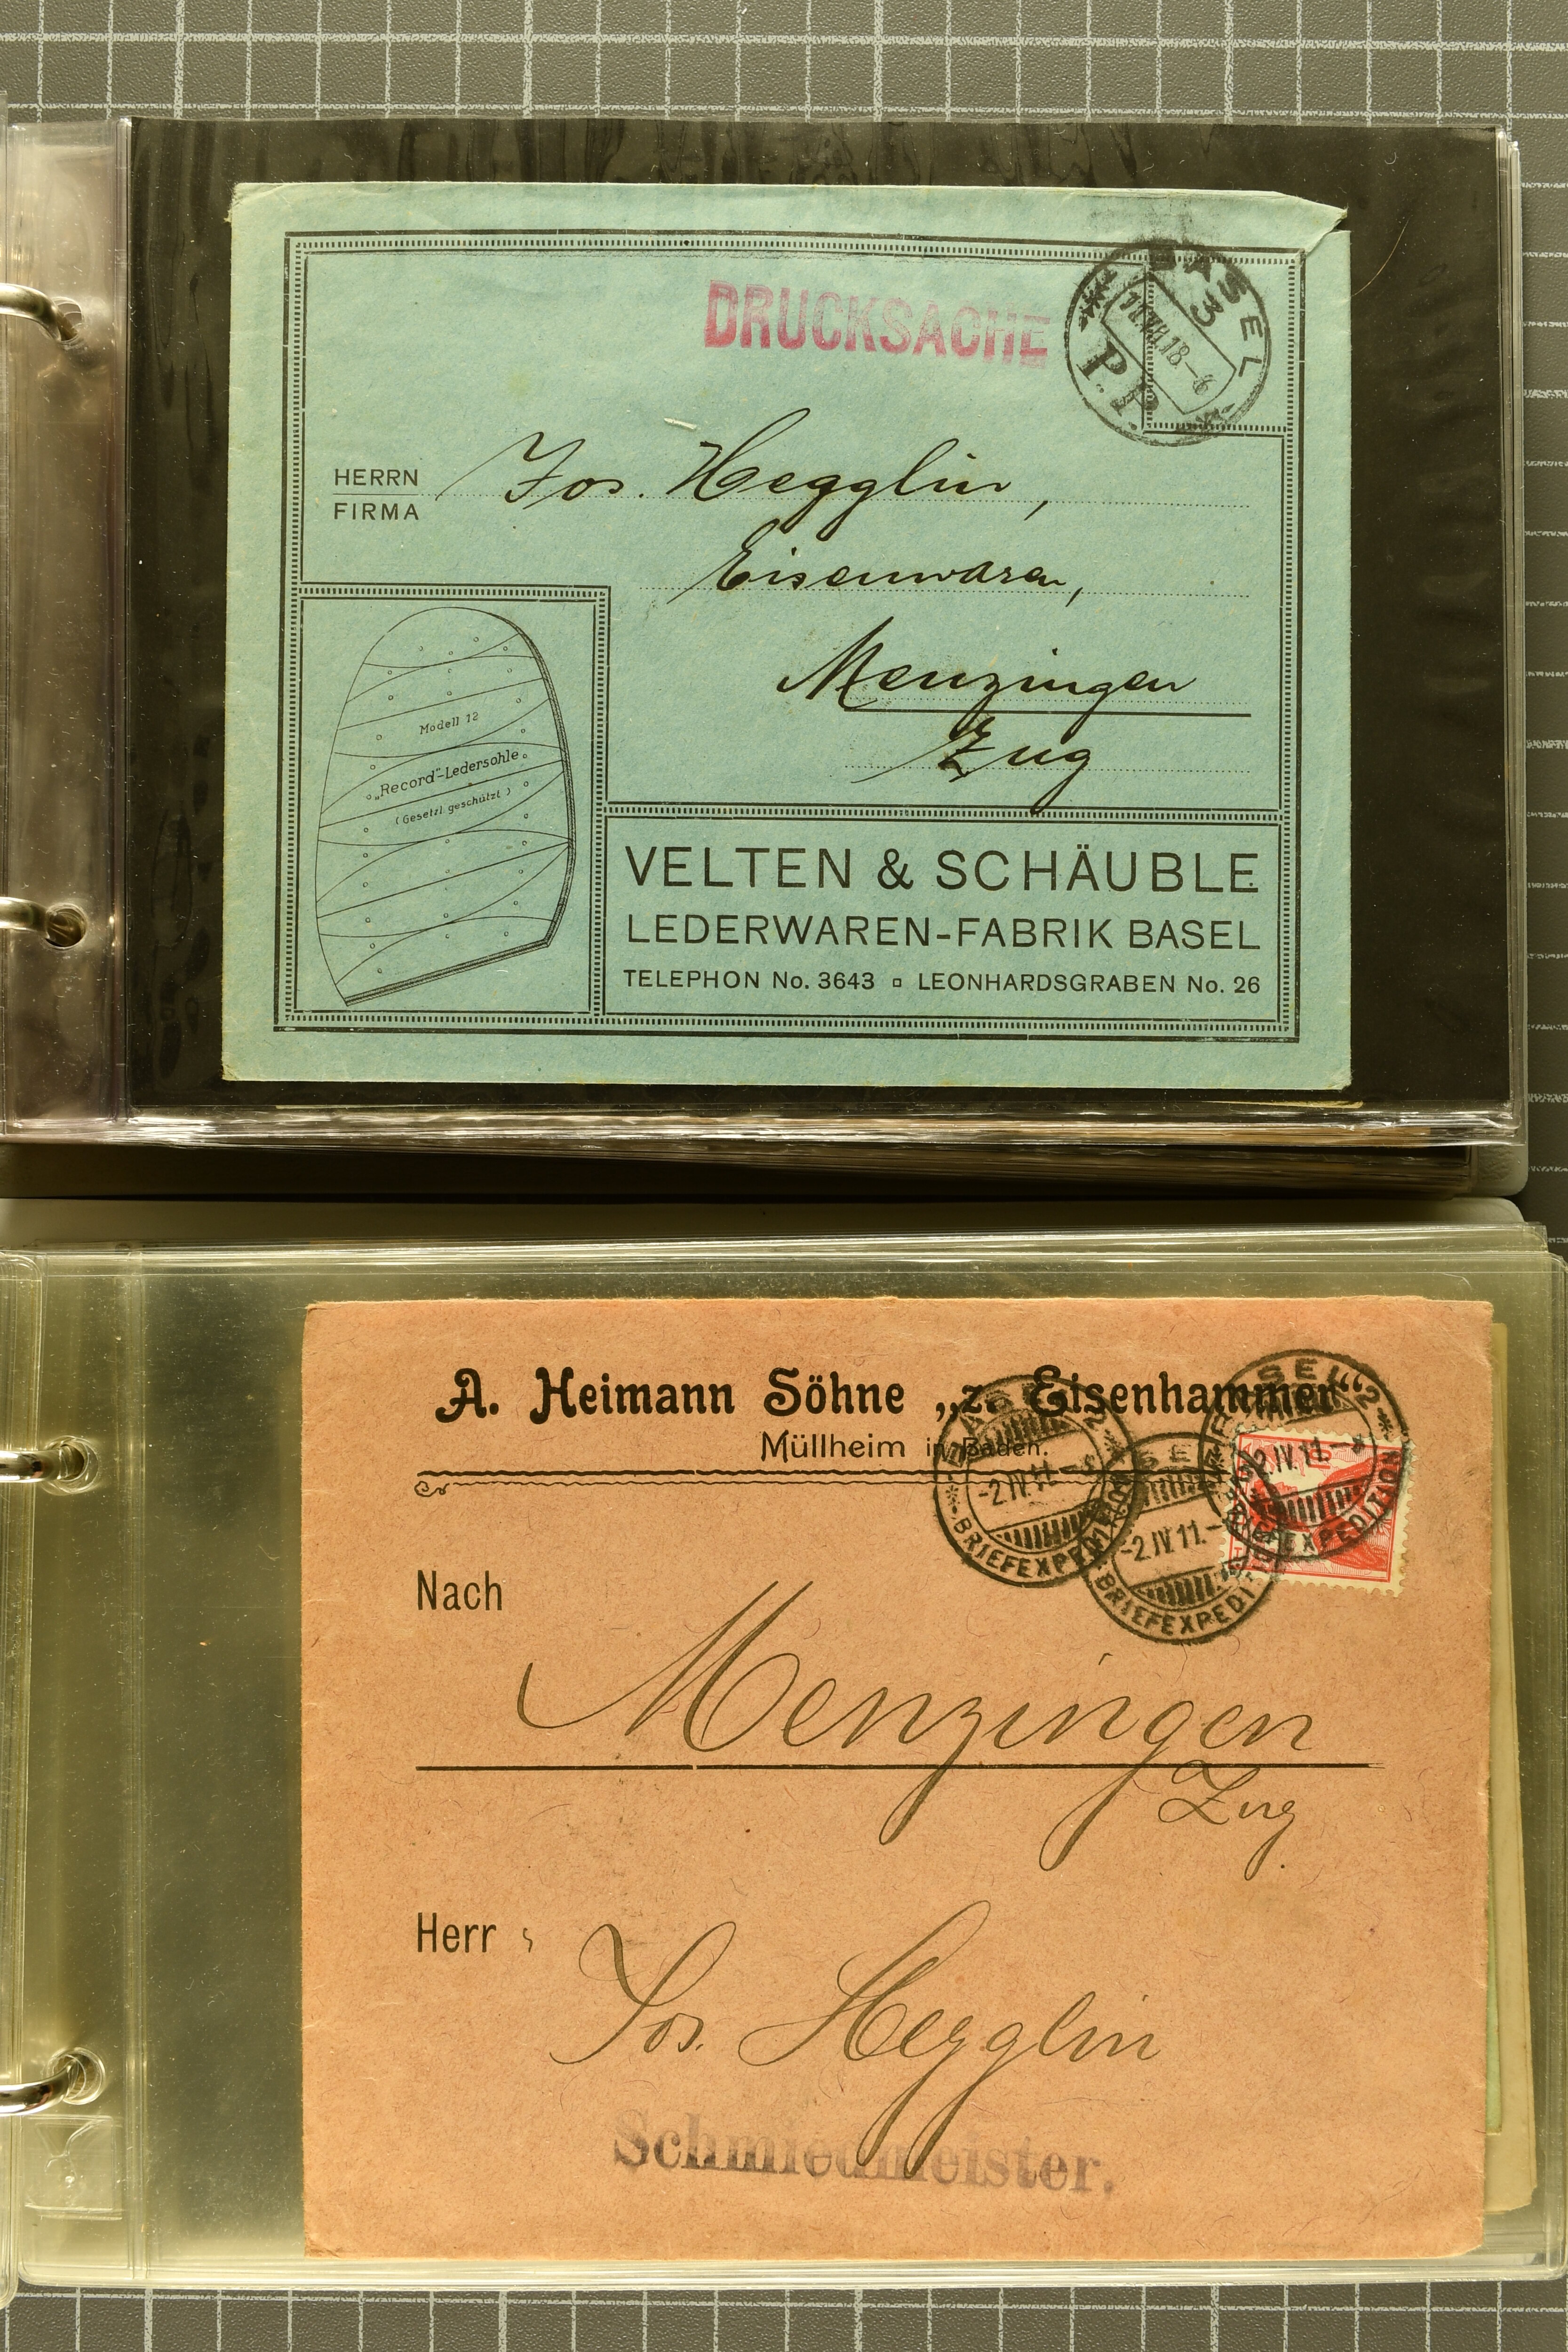 DRUCKSACHE
BASEL
3
P.P.
HERRN
FIRMA
Jos. Hegglin,
Eisenwaren,
Menzingen
Zug
Modell 12
„Record"-Ledersohle
(Gesetzl. geschützt)
VELTEN & SCHÄUBLE
LEDERWAREN-FABRIK BASEL
TELEPHON No. 3643 ▫ LEONHARDSGRABEN No. 26
A. Heimann Söhne „z. Eisenhammer“
Müllheim in Baden.
BASEL 2
-2.IV.11.-
BRIEFEXPEDITION
-2.IV.11.-
BRIEFEXPEDITION
BASEL 2
-2.IV.11.-
BRIEFEXPEDITION
Nach
Menzingen
Zug
Herr
Jos. Hegglin
Schmiedmeister.